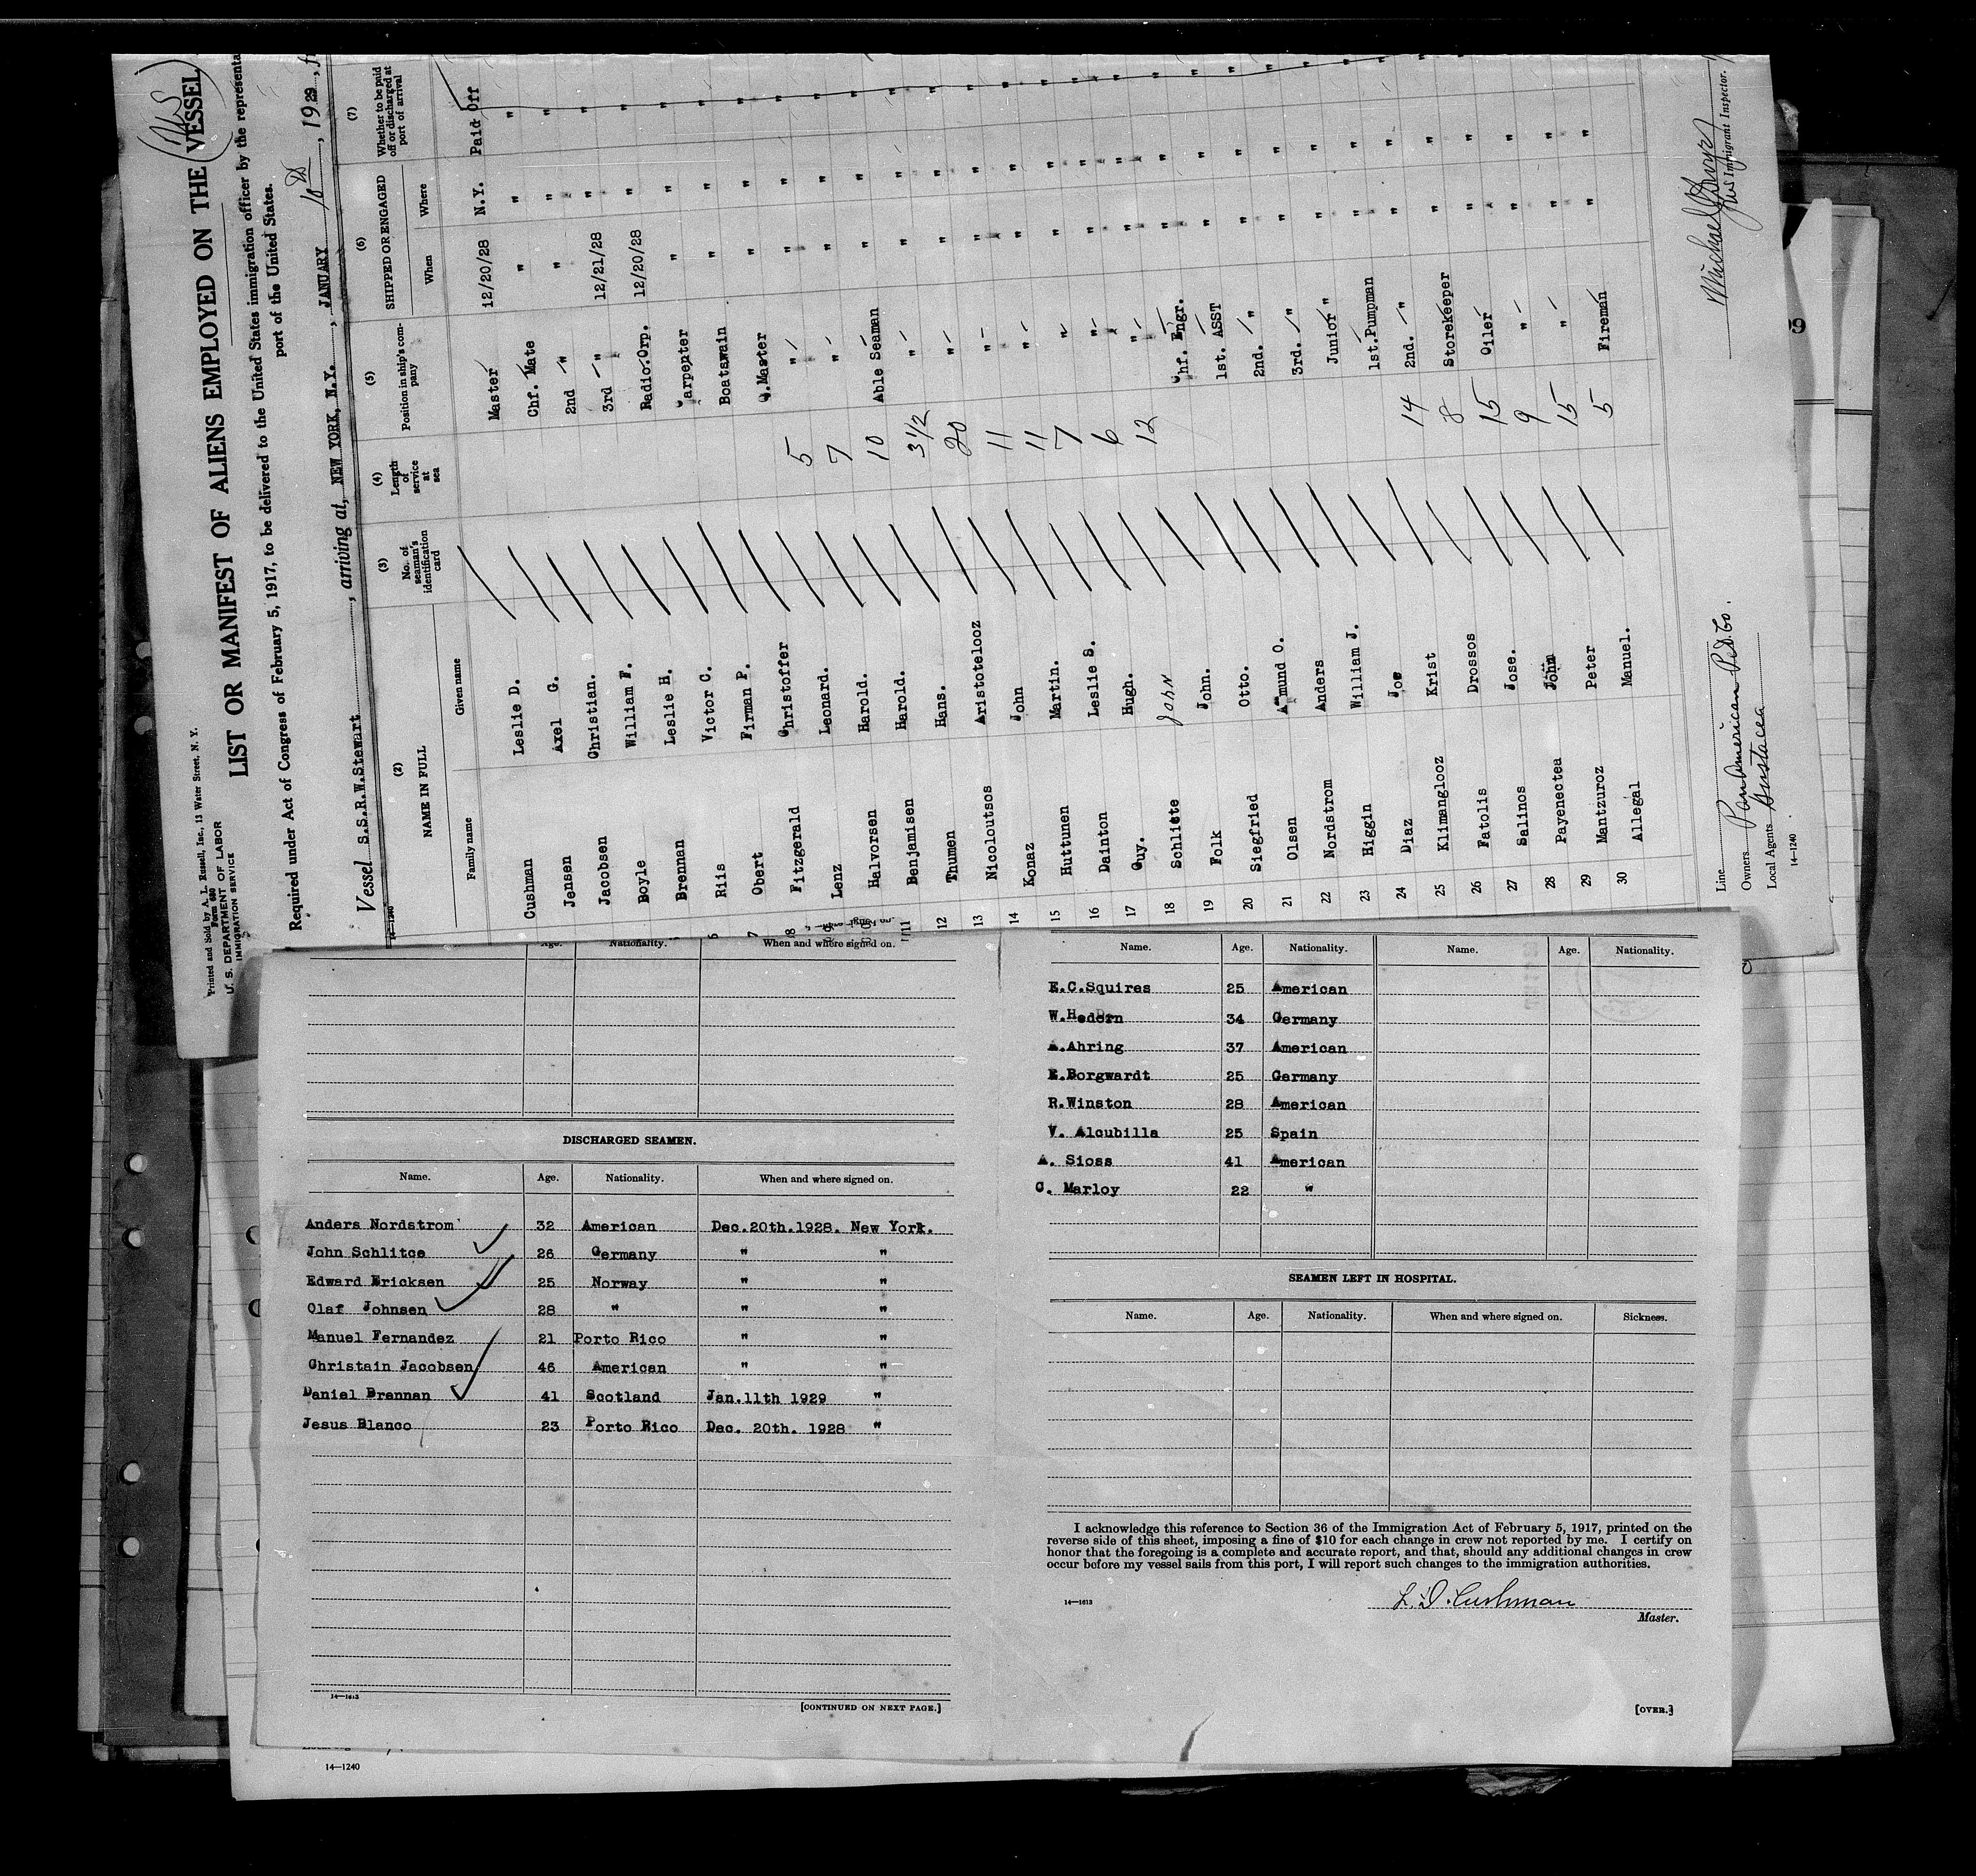 Printed and Sold by A. L. Russell, Inc., 13 Water Street, N. Y.
Form 680
U. S. DEPARTMENT OF LABOR
IMMIGRATION SERVICE
LIST OR MANIFEST OF ALIENS EMPLOYED ON THE VESSEL
Required under Act of Congress of February 5, 1917, to be delivered to the United States immigration officer by the representa
port of the United States.
Vessel S.S.R.W.Stewart, arriving at, NEW YORK, N.Y., JANUARY 10th, 1929,
14-1240
(2) (3) (4) (5) (6) (7)
NAME IN FULL No. of seaman's identification card Length of service at sea Position in ship's company SHIPPED OR ENGAGED Whether to be paid off or discharged at port of arrival
Family name Given name When Where
Cushman Leslie D. Master 12/20/28 N.Y. Paid Off
Jensen Axel G. Chf. Mate " " "
Jacobsen Christian. 2nd " " " "
Boyle William F. 3rd " 12/21/28 " "
Brennan Leslie H. Radio Orp. 12/20/28 " "
Riis Victor C. Carpenter " " "
7 Obert Firman P. Boatswain " " "
8 Fitzgerald Christoffer Q.Master " " "
Lenz Leonard. 5 " " " "
Halvorsen Harold. 7 " " " "
11 Benjamisen Harold. 10 Able Seaman " " "
12 Thumen Hans. 3 1/2 " " " "
13 Nicoloutsos Aristotelooz 20 " " " "
14 Konaz John 11 " " " "
15 Huttunen Martin. 11 " " " "
16 Dainton Leslie S. 7 " " " "
17 Guy. Hugh. 6 " " " "
18 Schlite John 12 " " " "
19 Folk John. Chf. Engr. " " "
20 Siegfried Otto. 1st. ASST " " "
21 Olsen Amund O. 2nd. " " " "
22 Nordstrom Anders 3rd. " " " "
23 Higgin William J. Junior " " " "
24 Diaz Joe 1st.Pumpman " " "
25 Klimanglooz Krist 14 2nd. " " " "
26 Fatolis Drossos 8 Storekeeper " " "
27 Salinos Jose. 15 Oiler " " "
28 Payenectea John 9 " " " "
29 Mantzuroz Peter 15 " " " "
30 Allegal Manuel. 5 Fireman " " "
Line
Owners Pan American Pet. Co.
Local Agents
14-1240
Immigrant Inspector.
Age. Nationality. When and where signed on.
DISCHARGED SEAMEN.
Name. Age. Nationality. When and where signed on.
Anders Nordstrom 32 American Dec.20th.1928. New York.
John Schlitce 26 Germany " "
Edward Ericksen 25 Norway " "
Olaf Johnsen 28 " " "
Manuel Fernandez 21 Porto Rico " "
Christain Jacobsen 46 American " "
Daniel Brennan 41 Scotland Jan.11th 1929 "
Jesus Blanco 23 Porto Rico Dec. 20th. 1928 "
14—1613
[CONTINUED ON NEXT PAGE.]
14—1240
Name. Age. Nationality. Name. Age. Nationality.
E.C.Squires 25 American
W.Hedorn 34 Germany
A.Ahring 37 American
E.Borgwardt 25 Germany
R.Winston 28 American
V. Alcubilla 25 Spain
A. Sioss 41 American
C. Marloy 22 "
SEAMEN LEFT IN HOSPITAL.
Name. Age. Nationality. When and where signed on. Sickness.
I acknowledge this reference to Section 36 of the Immigration Act of February 5, 1917, printed on the
reverse side of this sheet, imposing a fine of $10 for each change in crew not reported by me. I certify on
honor that the foregoing is a complete and accurate report, and that, should any additional changes in crew
occur before my vessel sails from this port, I will report such changes to the immigration authorities.
14—1613
L. D. Cushman
Master.
[OVER.]